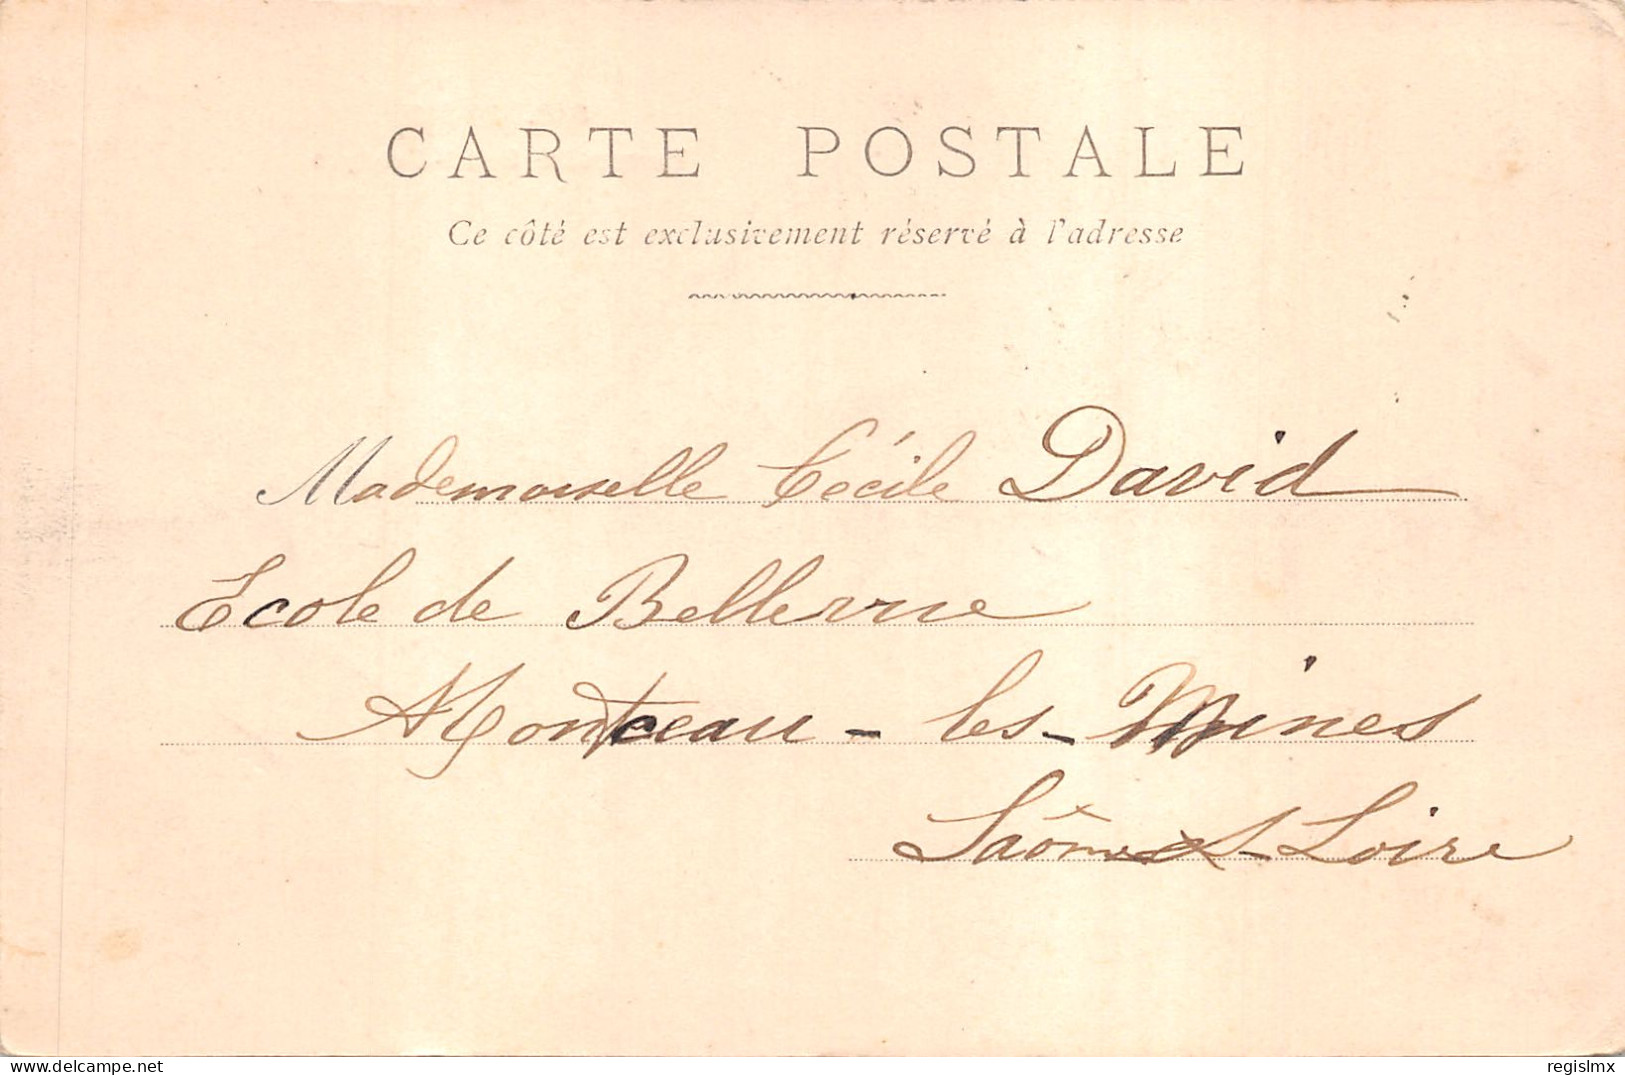 CARTE POSTALE
Ce côté est exclusivement réservé à l'adresse
Mademoiselle Cécile David
Ecole de Bellevue
Montceau - les - Mines
Saône & Loire
www.delcampe.net
regislmx